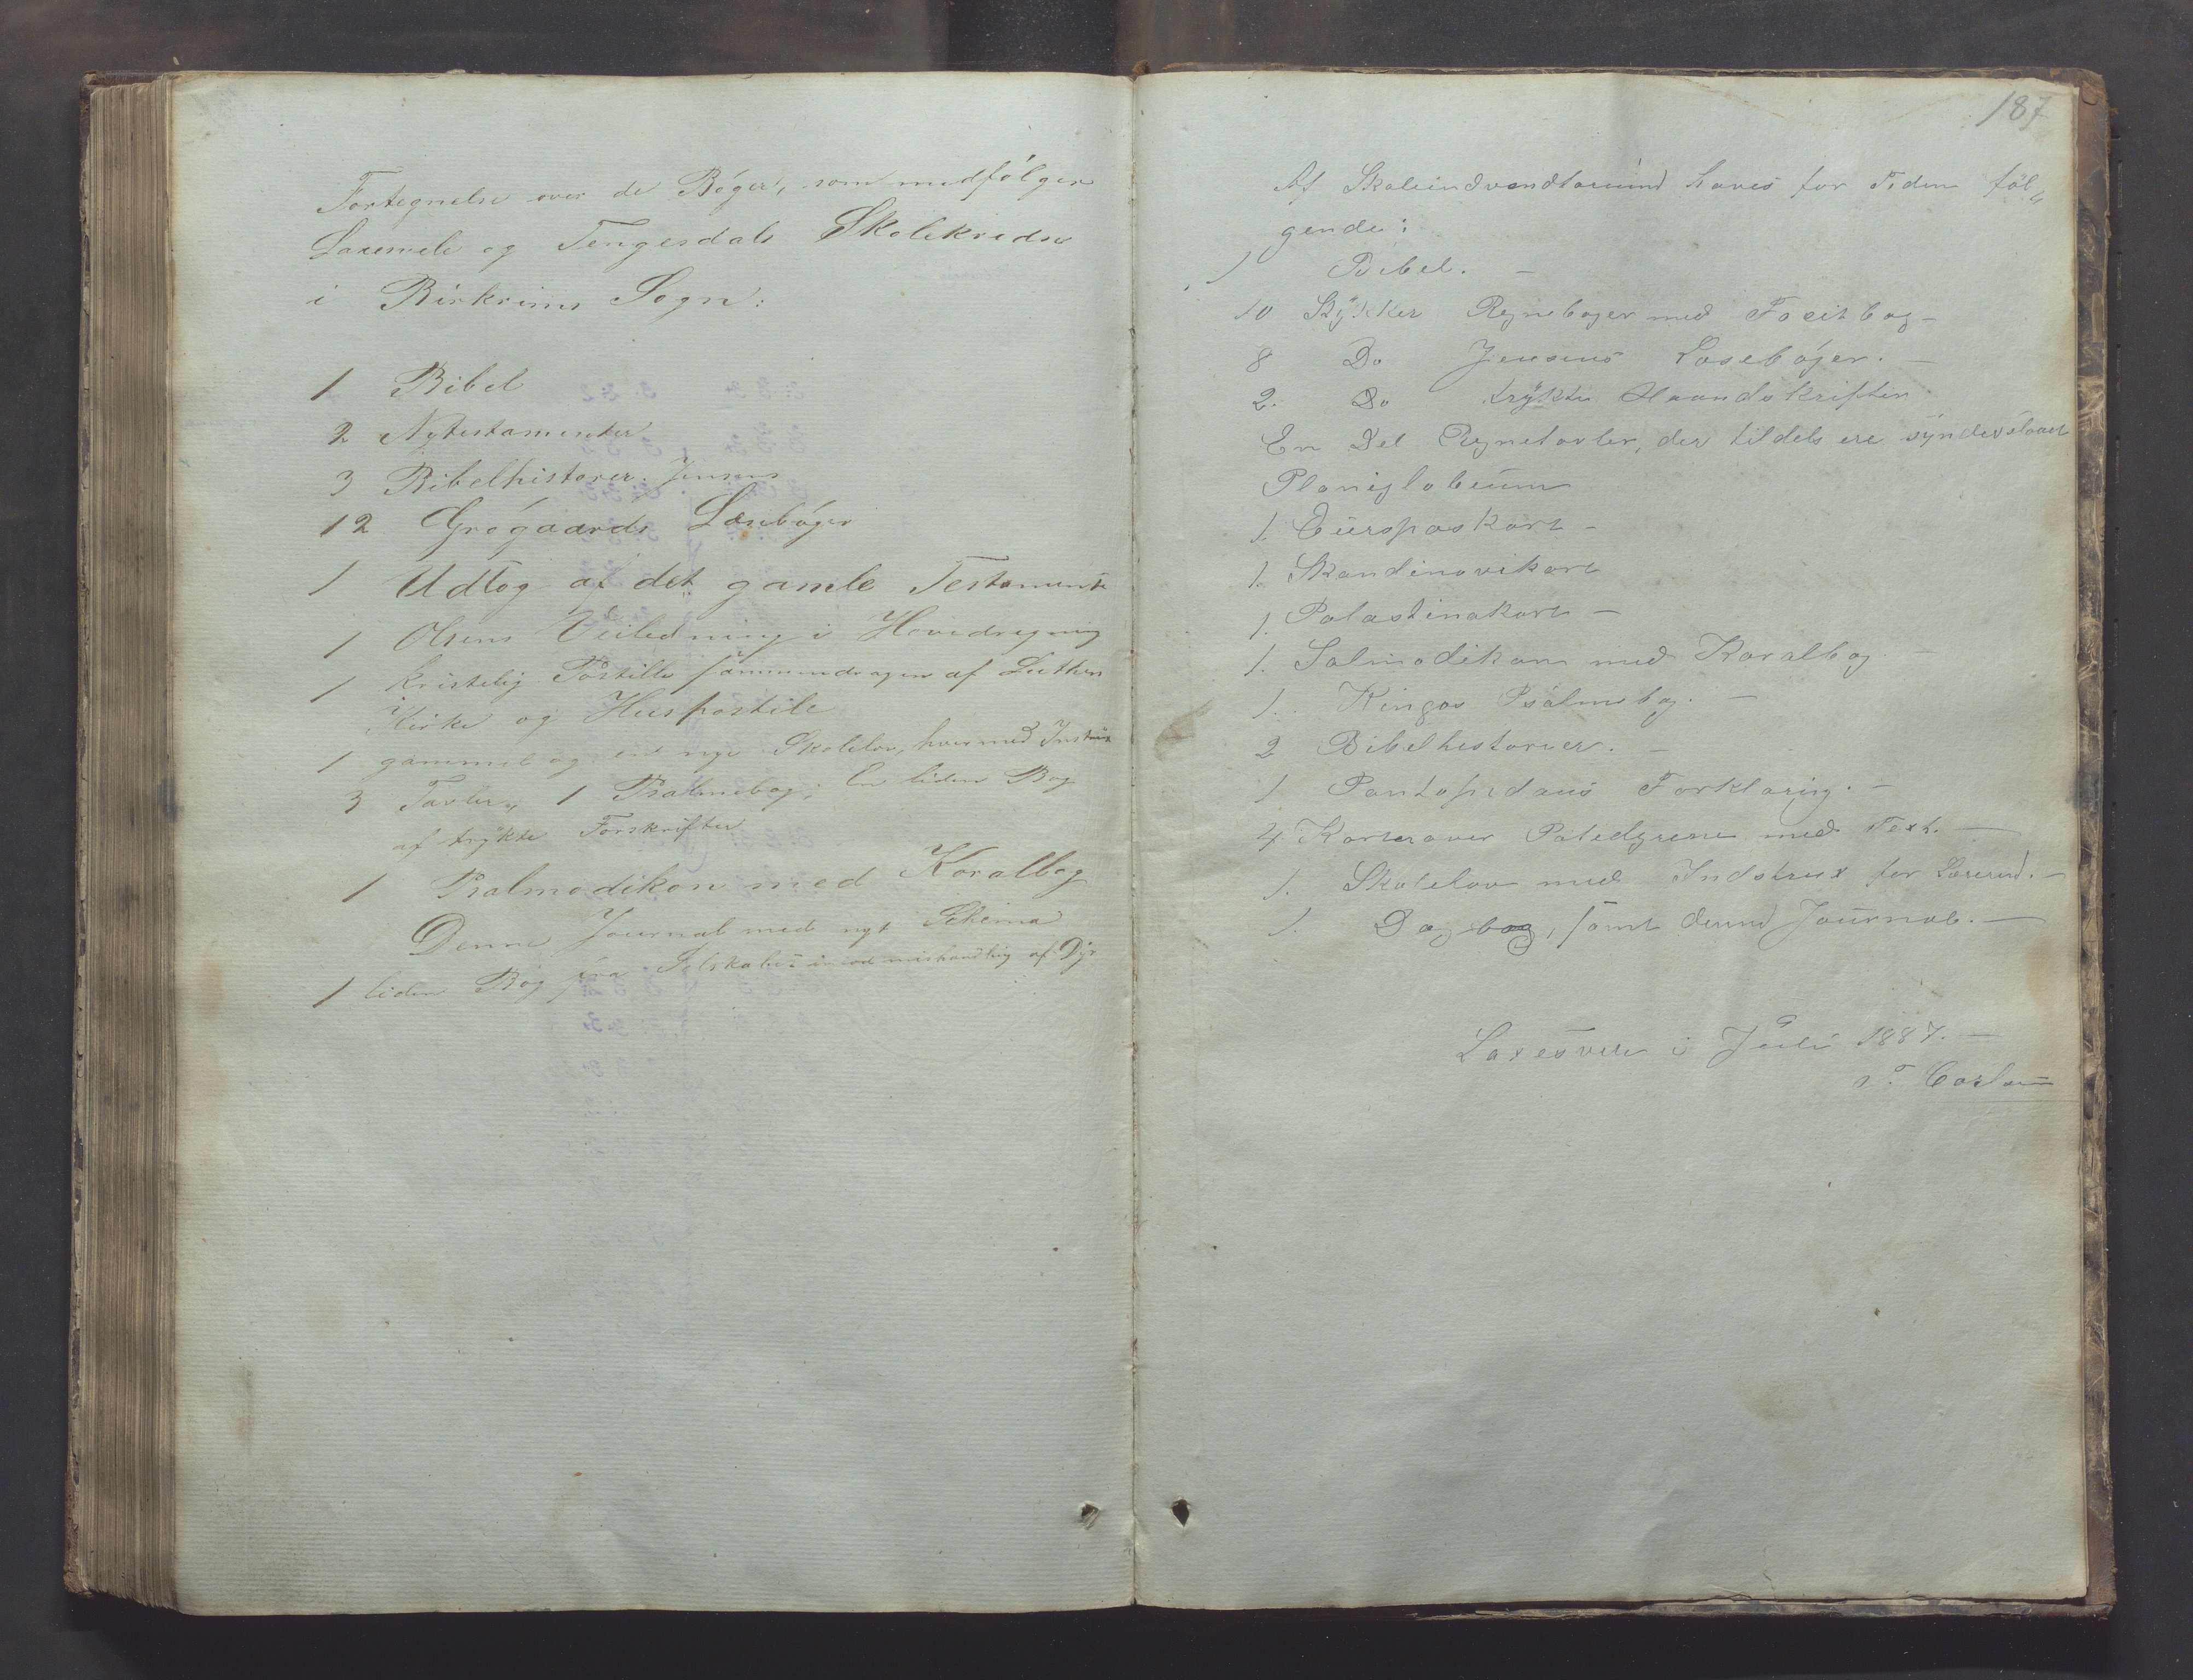 Fortegnelse over de Bøger, som medfølger
Laxemele og Tengesdals Skolekredse
i Birkrims Sogn:
1 Bibel
2 Nytestamenter
3 Bibelhistorier. Jensens
12 Grøgaards Læsebøger
1 Udtog af det gamle Testamente
1 Olsens Veiledning i Hovedregning
1 kristelig Postille sammendragen af Luthers
Kirke og Huspostile
1 gammel og en nye Skolelov, hvermed Instrux
3 Tavler, 1 Psalmebog; En liden Bog
af trykte Forskrifter
1 Psalmodikon med Koralbog
Denne Journal med nyt Schema
1 liden Bog fra Selskabet imod mishandling af Dyr
187
Af Skoleindventarium haves for Tiden føl„
gende:
1 Bibel. –
10 Stykker Regnebøger med Facitbog –
8 Do Jensens Læsebøger. –
2. Do trykte Haandskrifter
En Del Regnetavler, der tildels ere synderslaaet
Planiglobium
1. Europaskart –
1. Skandinavikart
1. Palastinakart –
1. Salmodikon med Koralbog –
1. Kingos Psalmebog. –
2 Bibelhistorier. –
1 Pontopidans Forklaring. –
4 Karter over med Text. –
1. Skolelov med Indstrux for Læreren. –
1. Dagbog, samt denne Journal. –
i Juli 1887. –
T.